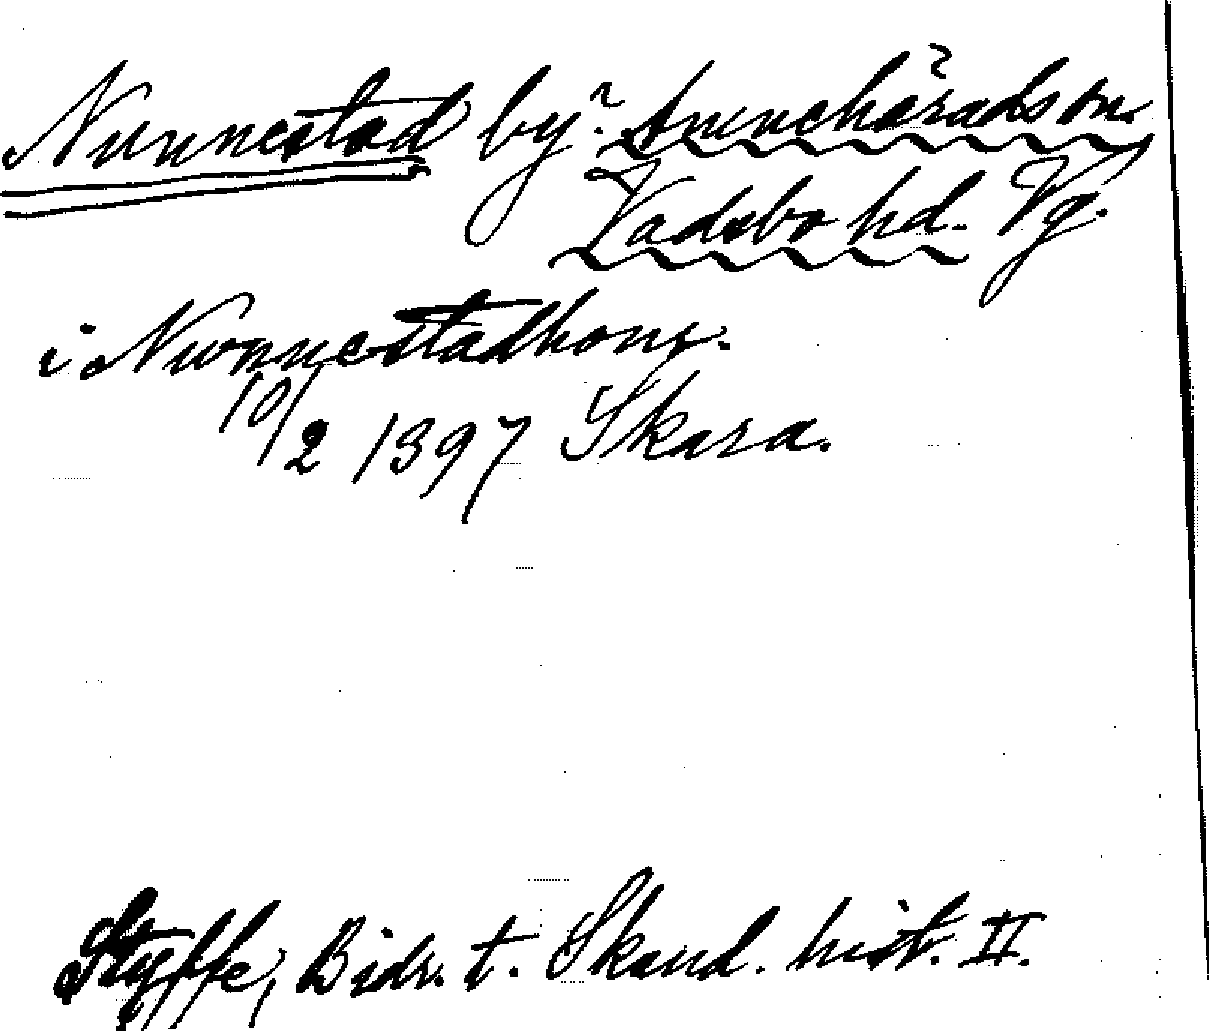 Nunnestad by? Amnehärads sn.?
Vadsbo hd. Vg.
i Nwnnestadhom.
10/2 1397 Skara.
Styffe, Bidr. t. Skand. hist. II.